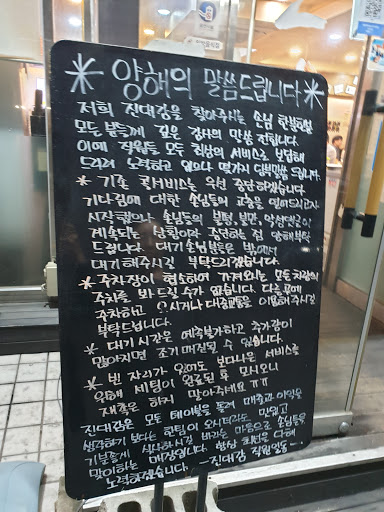 * 양해의 말씀드립니다 *
저희 진대감을 찾아주시는 손님 한분한분
모든분들께 깊은 감사의 말씀 전합니다.
이에 직원들 모두 최상의 서비스로 보답해
드리려 노력하고 있으나 몇가지 당부말씀 드립니다.
* 기존 콜서비스는 우선 중단하겠습니다.
기다림에 대한 손님들의 고충을 덜어드리고자
시작했으나 손님들의 분쟁, 불만, 악성댓글이
계속되는 상황이라 중단하는 점 양해부탁
드립니다. 대기손님분들은 밖에서
대기해주시길 부탁드리겠습니다.
* 주차장이 협소하여 가져오시는 모든차량의
주차를 봐 드릴 수가 없습니다. 다른곳에
주차하고 오시거나 대중교통을 이용해주시길
부탁드립니다.
* 대기시간은 예측불가하고 추가량이
많아지면 조기 마감될 수 있습니다.
* 빈 자리가 있어도 보다나은 서비스를
위해 세팅이 완료된 후 모시오니
재촉은 하지 말아주세요 ㅠㅠ
진대감은 모든 테이블을 돌려 매출과 이익을
생각하기 보다는 한팀이 오시더라도 맛있고
기분좋게 식사하시길 바라는 마음으로 손님들을
맞이하는 매장입니다. 항상 최선을 다해
노력하겠습니다 - 진대감 직원일동 -